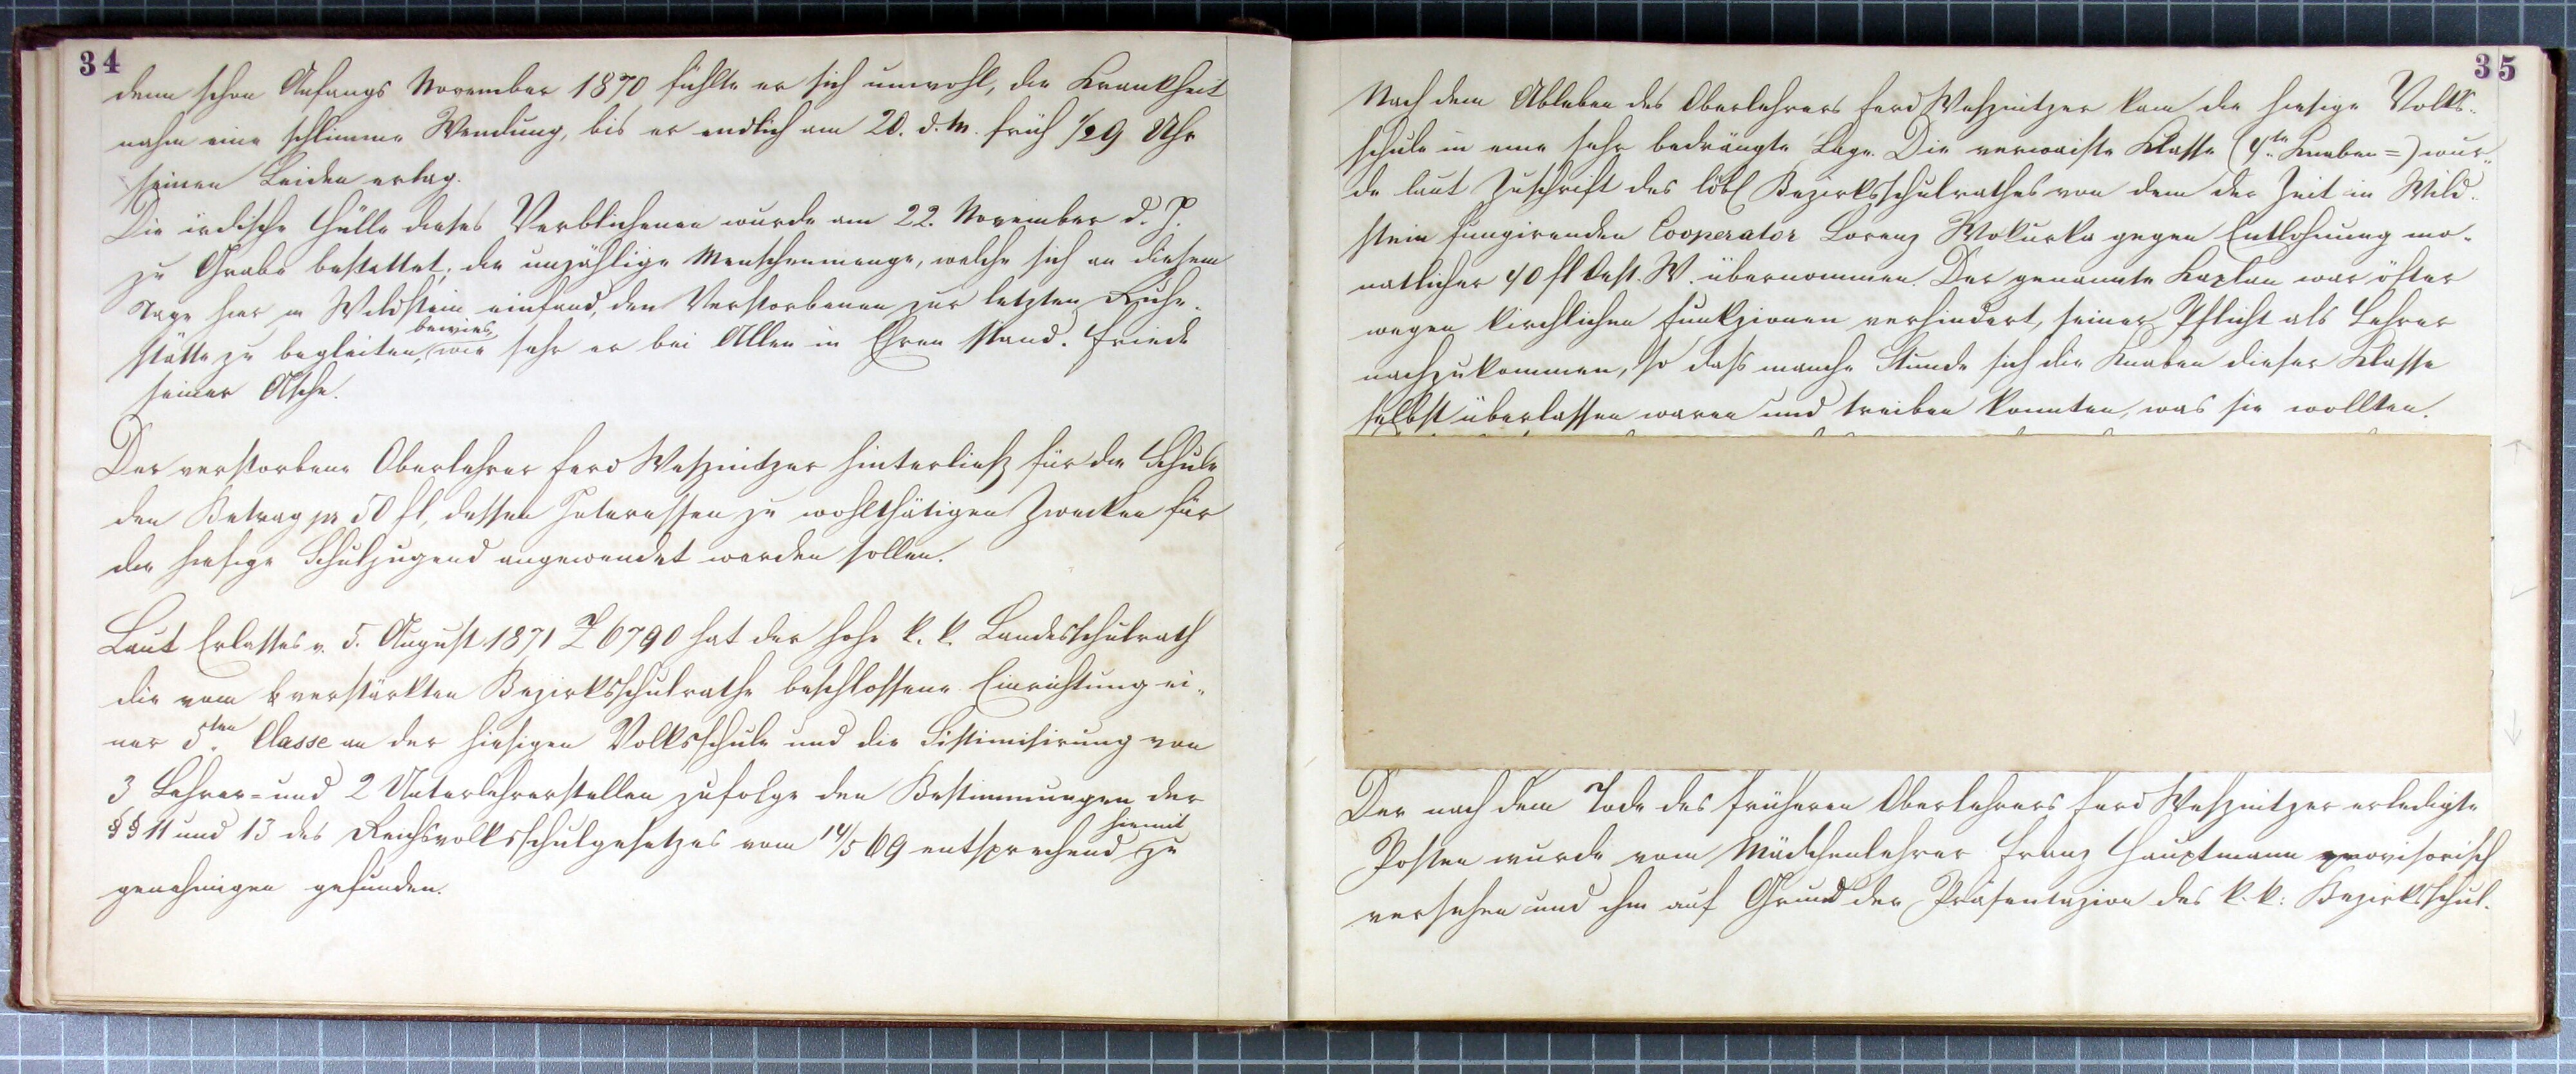 34
denn schon Anfangs November 1870 fühlte er sich unwohl, die Krankheit
nahm eine schlimme Wendung, bis er endlich am 20. d. M. früh 1/29 Uhr
seinen Leiden erlag.
Die irdische Hülle dieses Verblichenen wurde am 22. November d. J.
zu Grabe bestattet; die unzählige Menschenmenge, welche sich an diesem
Tage hier in Wildstein einfand, den Verstorbenen zur letzten Ruhe-
stätte zu begleiten, bewies, wie sehr er bei Allen in Ehren stand. Friede
seiner Asche.
Der verstorbene Oberlehrer Ferd Weßnitzer hinterließ für die Schule
den Betrag pr 50 fl, dessen Interessen zu wohlthätigen Zwecken für
die hiesige Schuljugend angewendet werden sollen.
Laut Erlasses v. 5. August 1871 Z 6790 hat der hohe k. k. Landesschulrath
die vom verstärkten Bezirksschulrathe beschlossene Einrichtung ei-
ner 5ten Classe an der hiesigen Volksschule und die Sistimisirung von
3 Lehrer- und 2 Unterlehrerstellen zufolge den Bestimmungen der
§§ 11 und 13 des Reichsvolksschulgesetzes vom 14/5 69 entsprechend hiemit zu
genehmigen gefunden.
35
Nach dem Ableben des Oberlehrers Ferd Weßnitzer kam die hiesige Volks-
schule in eine sehr bedrängte Lage. Die verwaiste Klasse (4te Knaben=) wur-
de laut Zuschrift des löbl Bezirksschulrathes von dem der Zeit in Wild-
stein fungirenden Cooperator Lorenz Wokurka gegen Entlohnung mo-
natlicher 40 fl Oest. W. übernommen. Der genannte Kaplan war öfter
wegen kirchlichen Funkzionen verhindert, seiner Pflicht als Lehrer
nachzukommen, so daß manche Stunde sich die Knaben dieser Klasse
selbst überlassen waren und treiben konnten, was sie wollten.
Der nach dem Tode des früheren Oberlehrers Ferd Weßnitzer erledigte
Posten wurde vom Mädchenlehrer Franz Hauptmann provisorisch
versehen und ihm auf Grund der Präsentazion des k. k. Bezirksschul-